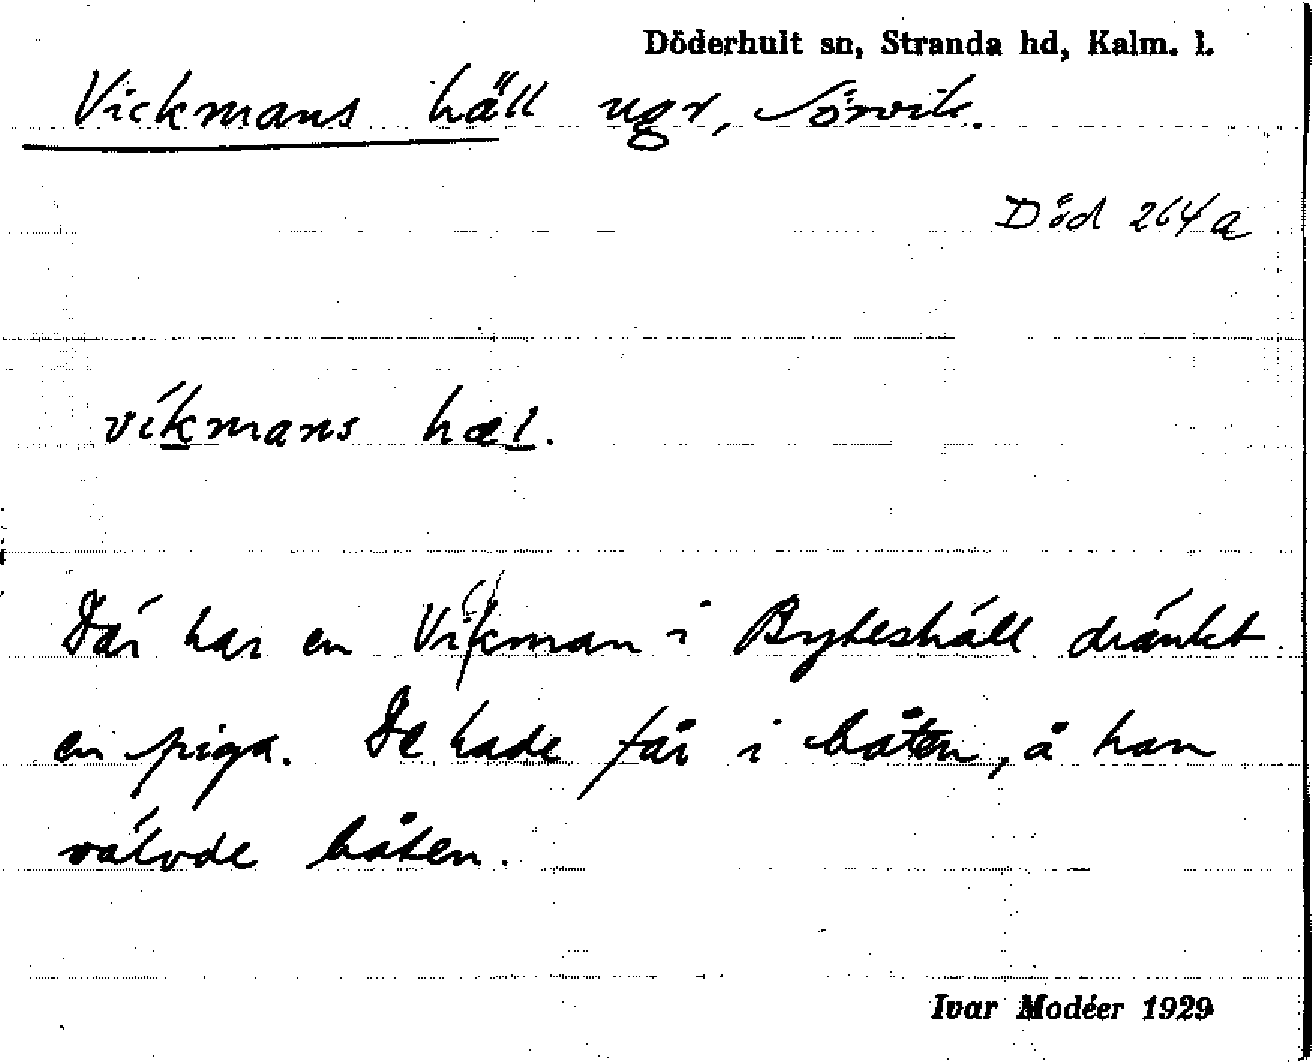 Döderhult sn, Stranda hd, Kalm. l.
Vickmans häll ugr, Sörvik.
Död 264a
víkmans hæl.
Där har en Vikman i Bykeshäll dränkt
en piga. De hade får i båten, å han
välvde båten.
Ivar Modéer 1929